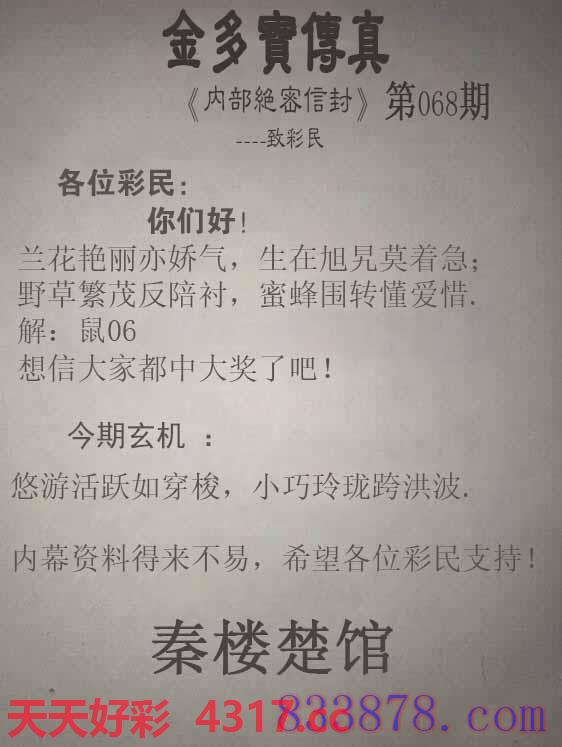 金多寶傳真
《内部絶密信封》第068期
----致彩民
各位彩民:
你们好!
兰花艳丽亦娇气，生在旭旯莫着急;
野草繁茂反陪衬，蜜蜂围转懂爱惜.
解：鼠06
想信大家都中大奖了吧!
今期玄机 ：
悠游活跃如穿梭，小巧玲珑跨洪波.
内幕资料得来不易，希望各位彩民支持!
秦楼楚馆
天天好彩 4317.cc 833878.com